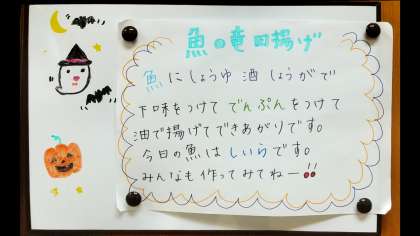 魚の竜田揚げ
魚にしょうゆ 酒 しょうがで
下味をつけて でんぷんをつけて
油で揚げてできあがりです。
今日の魚は しいらです。
みんなも作ってみてねー!!